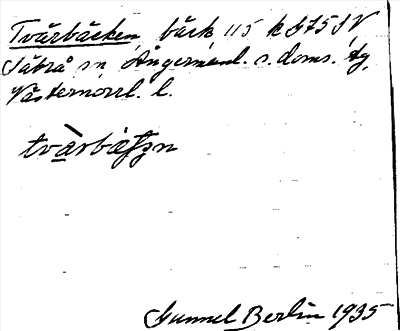 Tvärbäcken, bäck 115 k G75 SV
Säbrå sn Ångermanl. s. doms. tg
Västernorrl. l.
tvàrbäʃʒn
Gunnel Berlin 1935